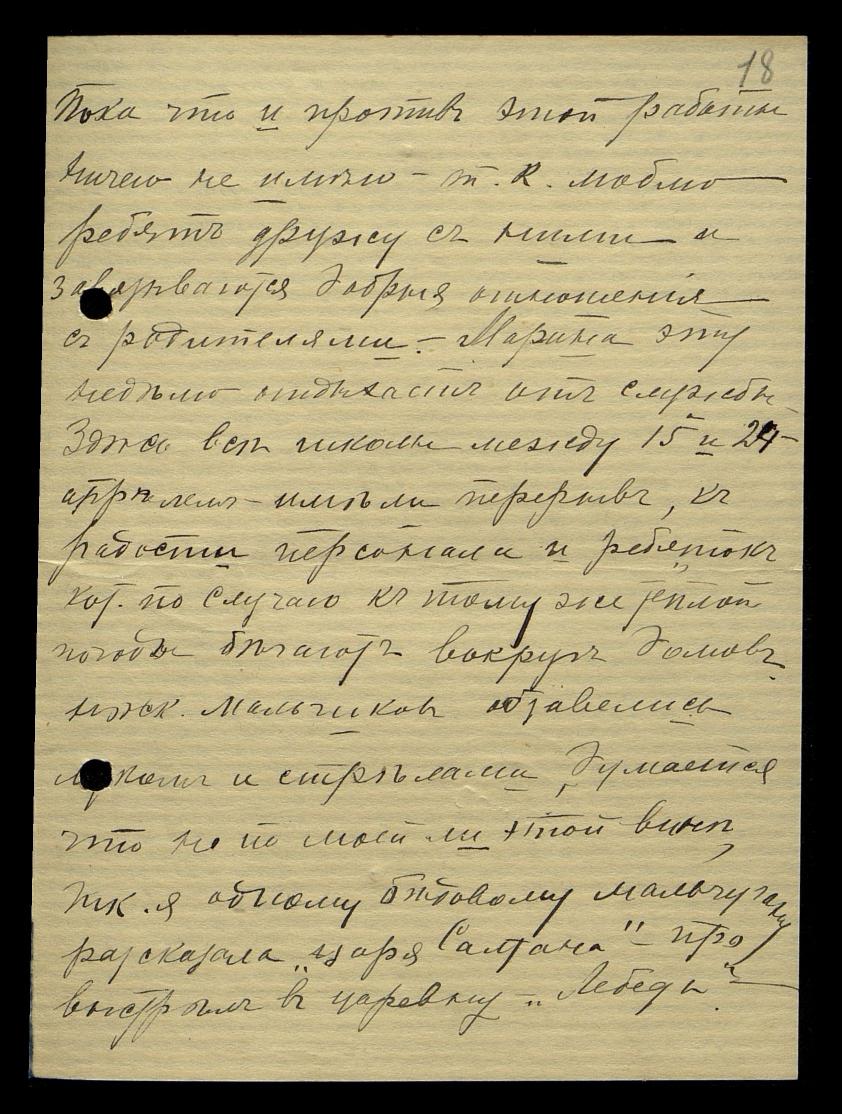 18
Пока что и противъ этой работы
ничего не имѣю – т.к. люблю
ребятъ дружу съ ними и
завязываются добрыя отношенія
съ родителями. – Марина эту
недѣлю отдыхаетъ отъ службы
Здѣсь всѣ школы между 15 и 24
апрѣлемъ – имѣли перерывъ, къ
радости персонала и ребятокъ
кот. по случаю къ тому же теплой
погоды бѣгаютъ вокругъ домовъ.
нѣск. мальчиковъ обзавелись
лукомъ и стрѣлами, думается
что не по моей ли этой винѣ,
тк. я одному бѣдовому мальчугану
разсказала „царя Салтана" – про
выстрѣлъ въ царевну „Лебедь".